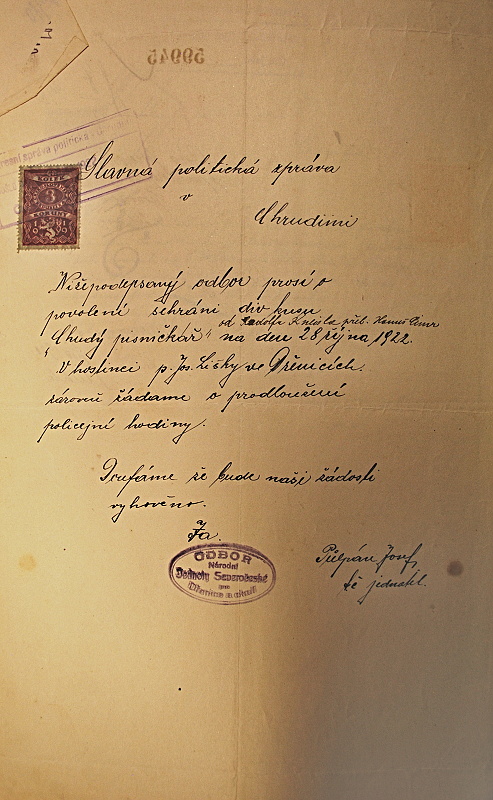 59945
Slavná politická zpráva
v
Chrudimi
KOLEK
3
KORUNY
Nížepodepsaný odbor prosí o
povolení sehráni div. kusu
od Rudolfa Kněžla přel. Hanuš
"Chudý písničkář" na den 28 října 1922.
V hostinci p. Jos. Lišky ve Dřenicích.
zároveň žádáme o prodloužení
policejní hodiny.
Doufáme že bude naší žádosti
vyhověno.
Za.
ODBOR
Národní
Jednoty Severočeské
pro
Dřenice a okolí
Josef
t.č. jednatel